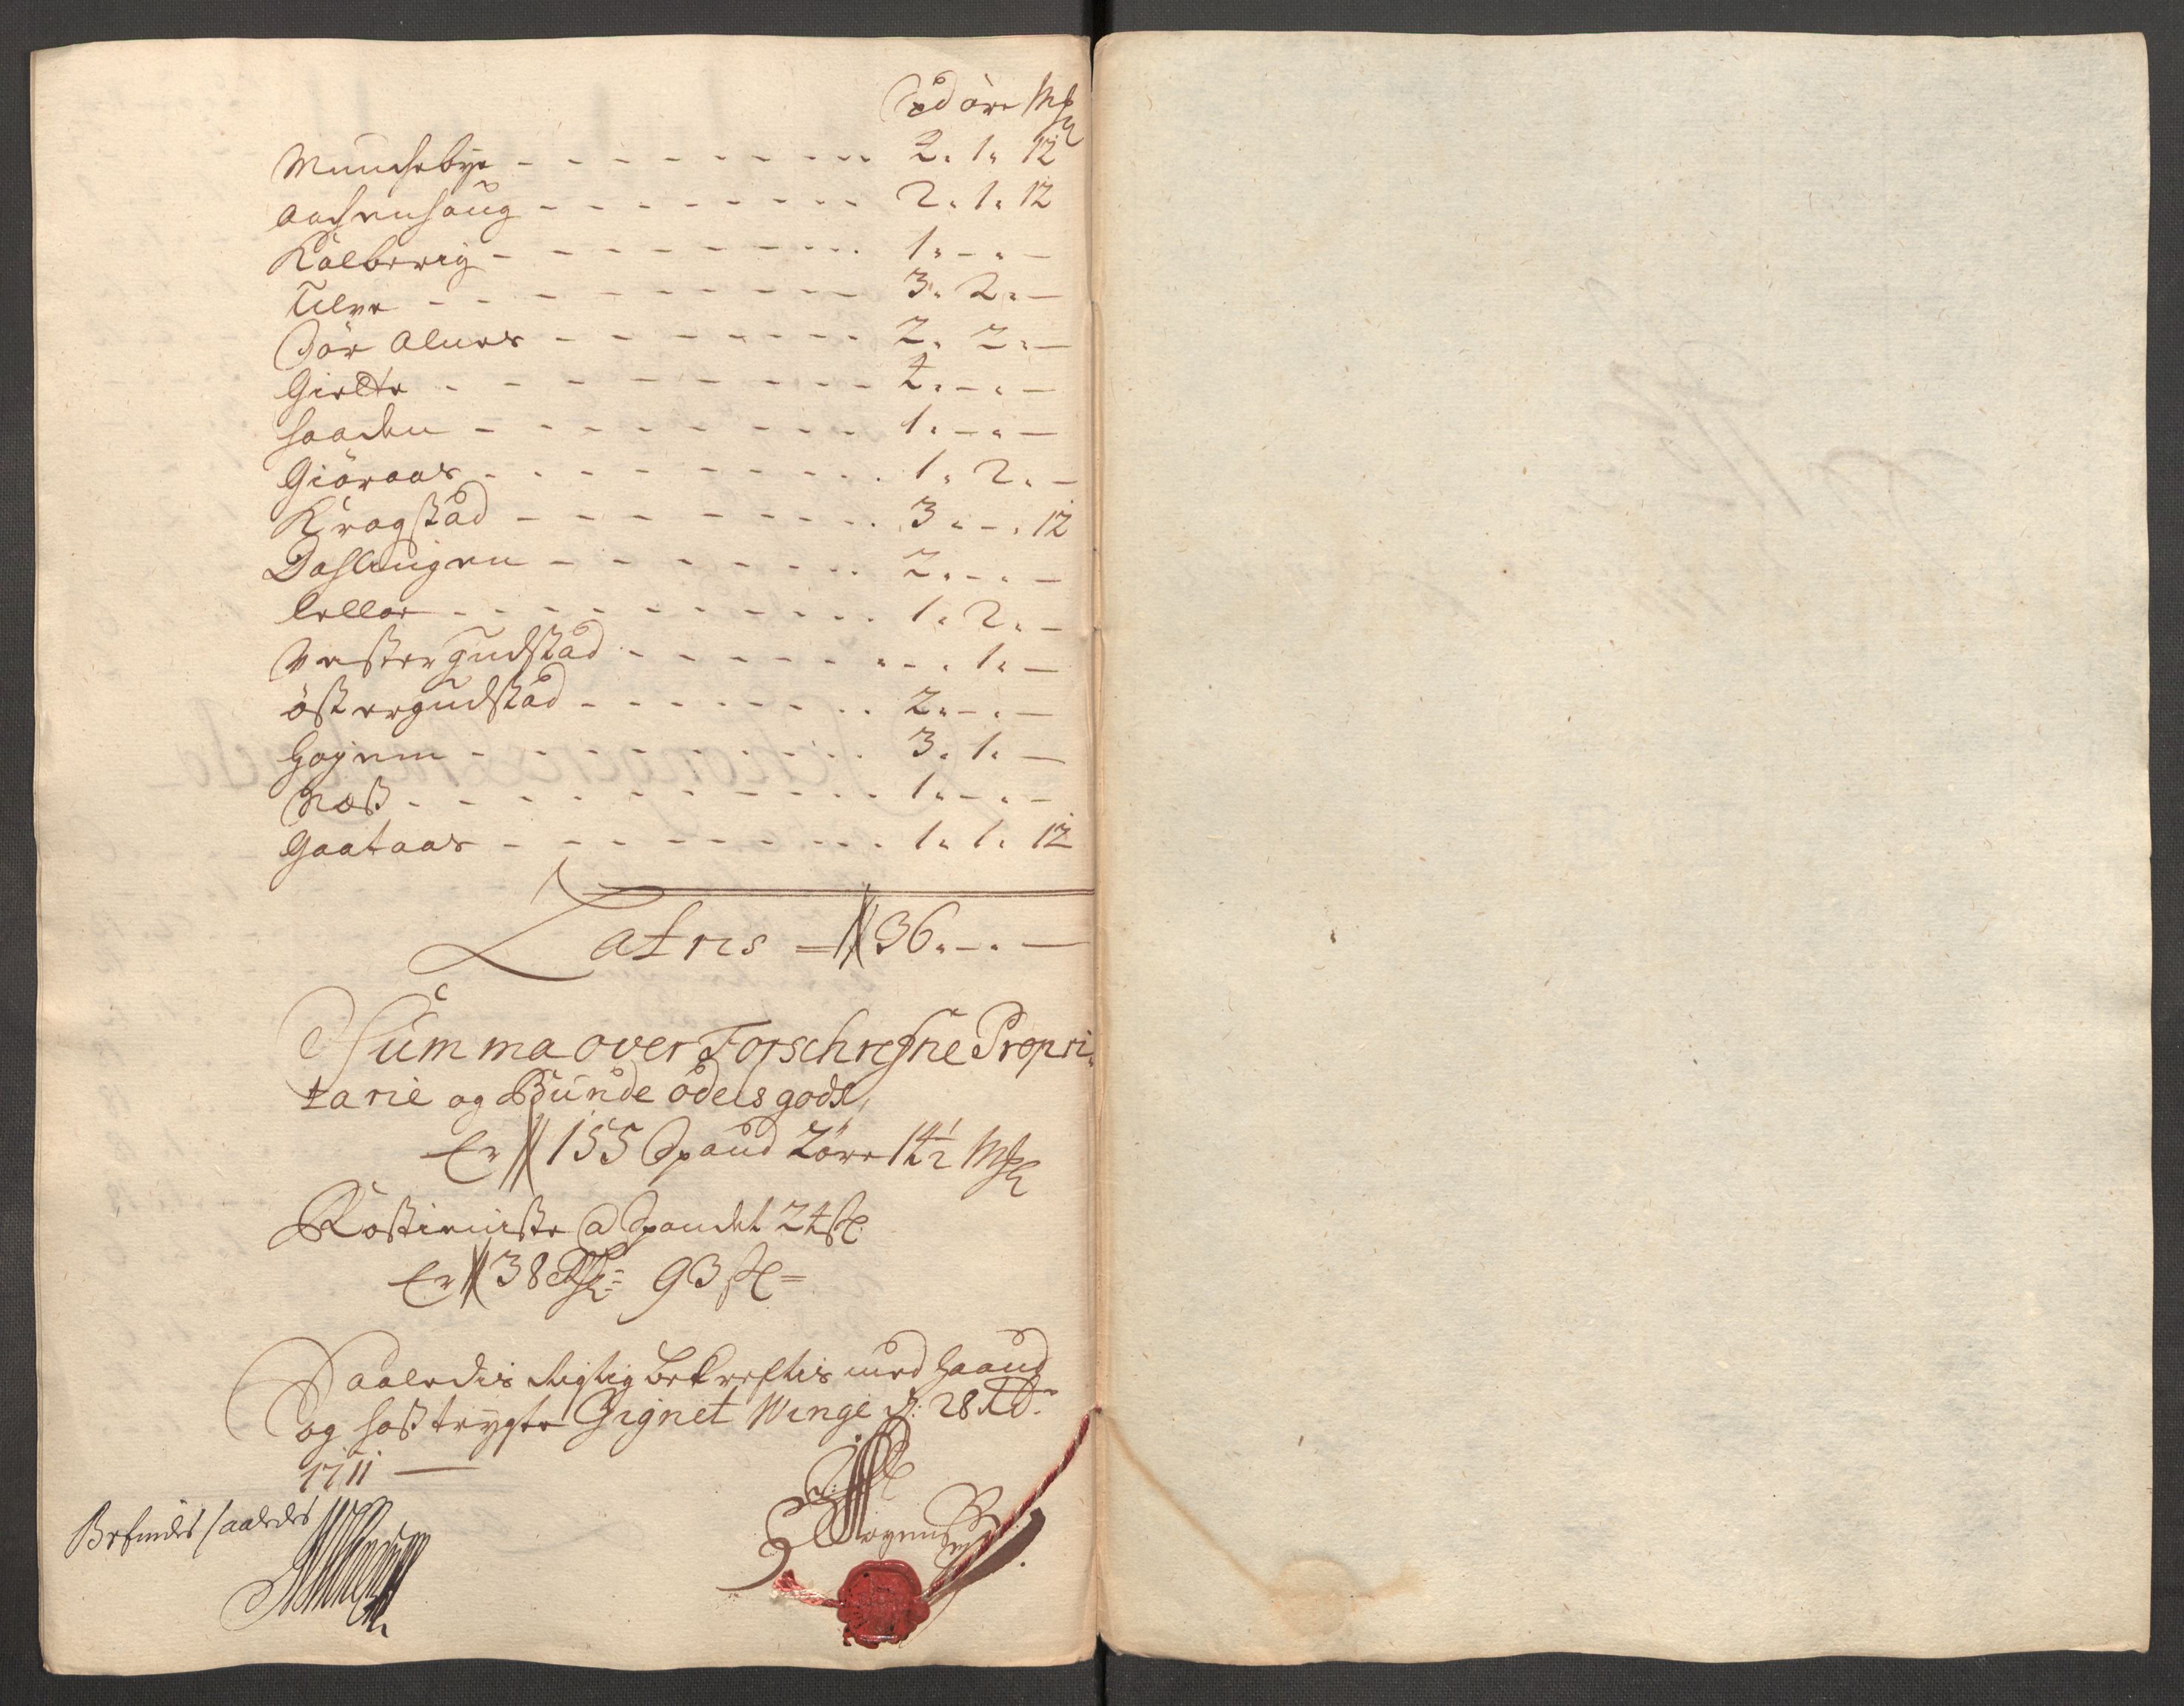 Spd öre Mkl
Munchebye - - - - - - - - - 2. 1. 12
Aachenhaug - - - - - - - - 2. 1. 12
Kålberrig - - - - - - - - 1. - . -
Tilve - - - - - - - - - 3. 2. -
Soer Alnes - - - - - - - 2. 2. -
Gielte - - - - - - - - - 2. - . -
Haaden - - - - - - - - 1. - . -
Giöraas - - - - - - - - 1. 2. -
Kragståd - - - - - - - - 3. - . 12
Dahlingen - - - - - - - 2. - . -
Leller - - - - - - - - - 1. 2. -
Vestergudståd - - - - - - - . 1. -
östergudståd - - - - - - - 2. - . -
Hojem - - - - - - - - 3. 1. -
Næss - - - - - - - - - 1. - . -
Gaataas - - - - - - - - 1. 1. 12
Latris = 36. - . -
Summa over Forschrefne Propri-
tarie og Bunde odels gods,
Er 155 Spand 2 öre 14½ Mkl
Rostieniste a Spandet 24 sk
Er 38 Rdr 93 sk
Saaledis Rigtig bekreftis med Haand
og hostrygte Signet Winge d: 28
1711
Befindes saaledes